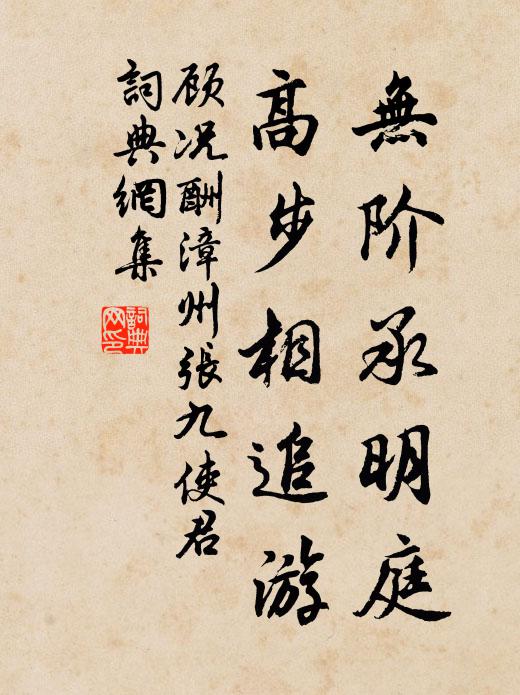 無阶承明庭
高步相追游
顾况酬漳州張九使君
詞典網集
詞典
网印